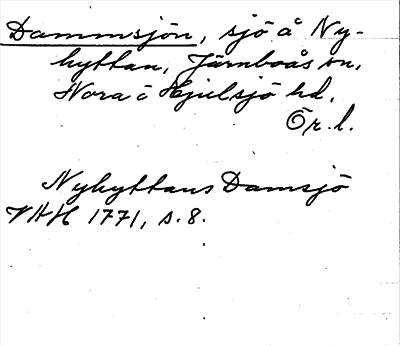 Dammsjön, sjö å Ny-
hyttan, Järnboås sn,
Nora o Hjulsjö hd,
Ör. l.
Nyhyttans Damsjö
VHH 1771, s. 8.